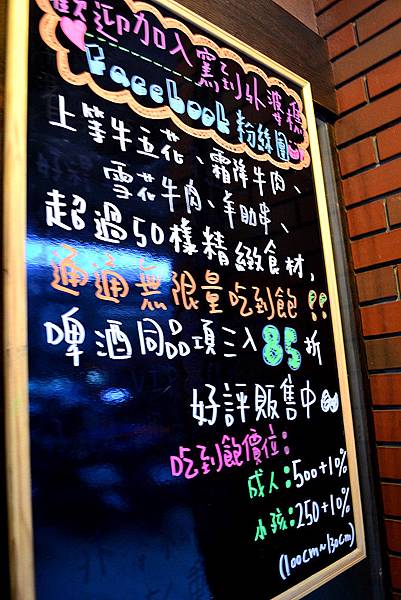 歡迎加入窯到外婆橋
Facebook 粉絲團
上等牛五花、霜降牛肉、
雪花牛肉、羊肋串、
超過50樣精緻食材,
通通無限量吃到飽!!
啤酒同品項三入85折
好評販售中
吃到飽價位:
成人:500+10%
小孩:250+10%
(100cm~130cm)